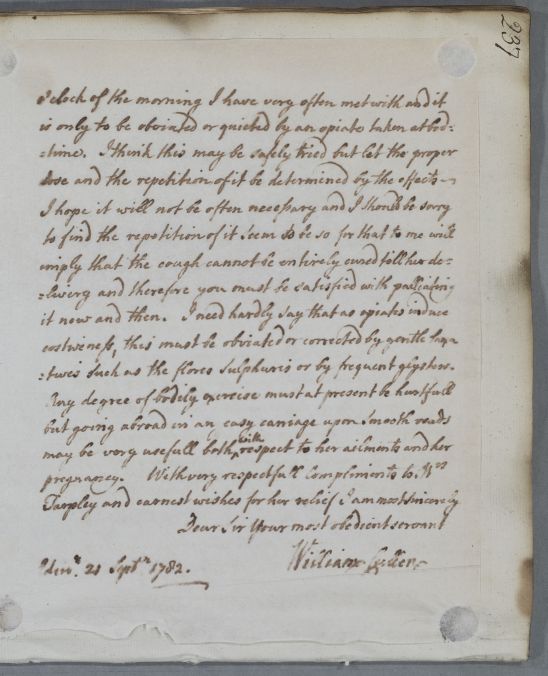 237
o'clock of the morning I have very often met with and it
is only to be obviated or quieted by an opiate taken at bed=
=time. I think this may be safely tried but let the proper
dose and the repetition of it be determined by the effects
I hope it will not be often necessary and I should be sorry
to find the repetition of it seem to be so for that to me will
imply that the cough cannot be entirely cured till her de=
=livery and therefore you must be satisfied with palliating
it now and then. I need hardly say that as opiates induce
costiveness, this must be obviated or corrected by gentle laxa
=tives such as the flores Sulphuris or by frequent glysters.
Any degree of bodily exercise must at present be hurtfull
but going abroad in an easy carriage upon smooth roads
may be very usefull both with respect to her ailments and her
pregnancy. With very respectfull Compliments to Mrs
Tarpley and earnest wishes for her relief I am most sincerely
Dear Sir Your most obedient servant
William Cullen
Edinr. 21 Septr. 1782.